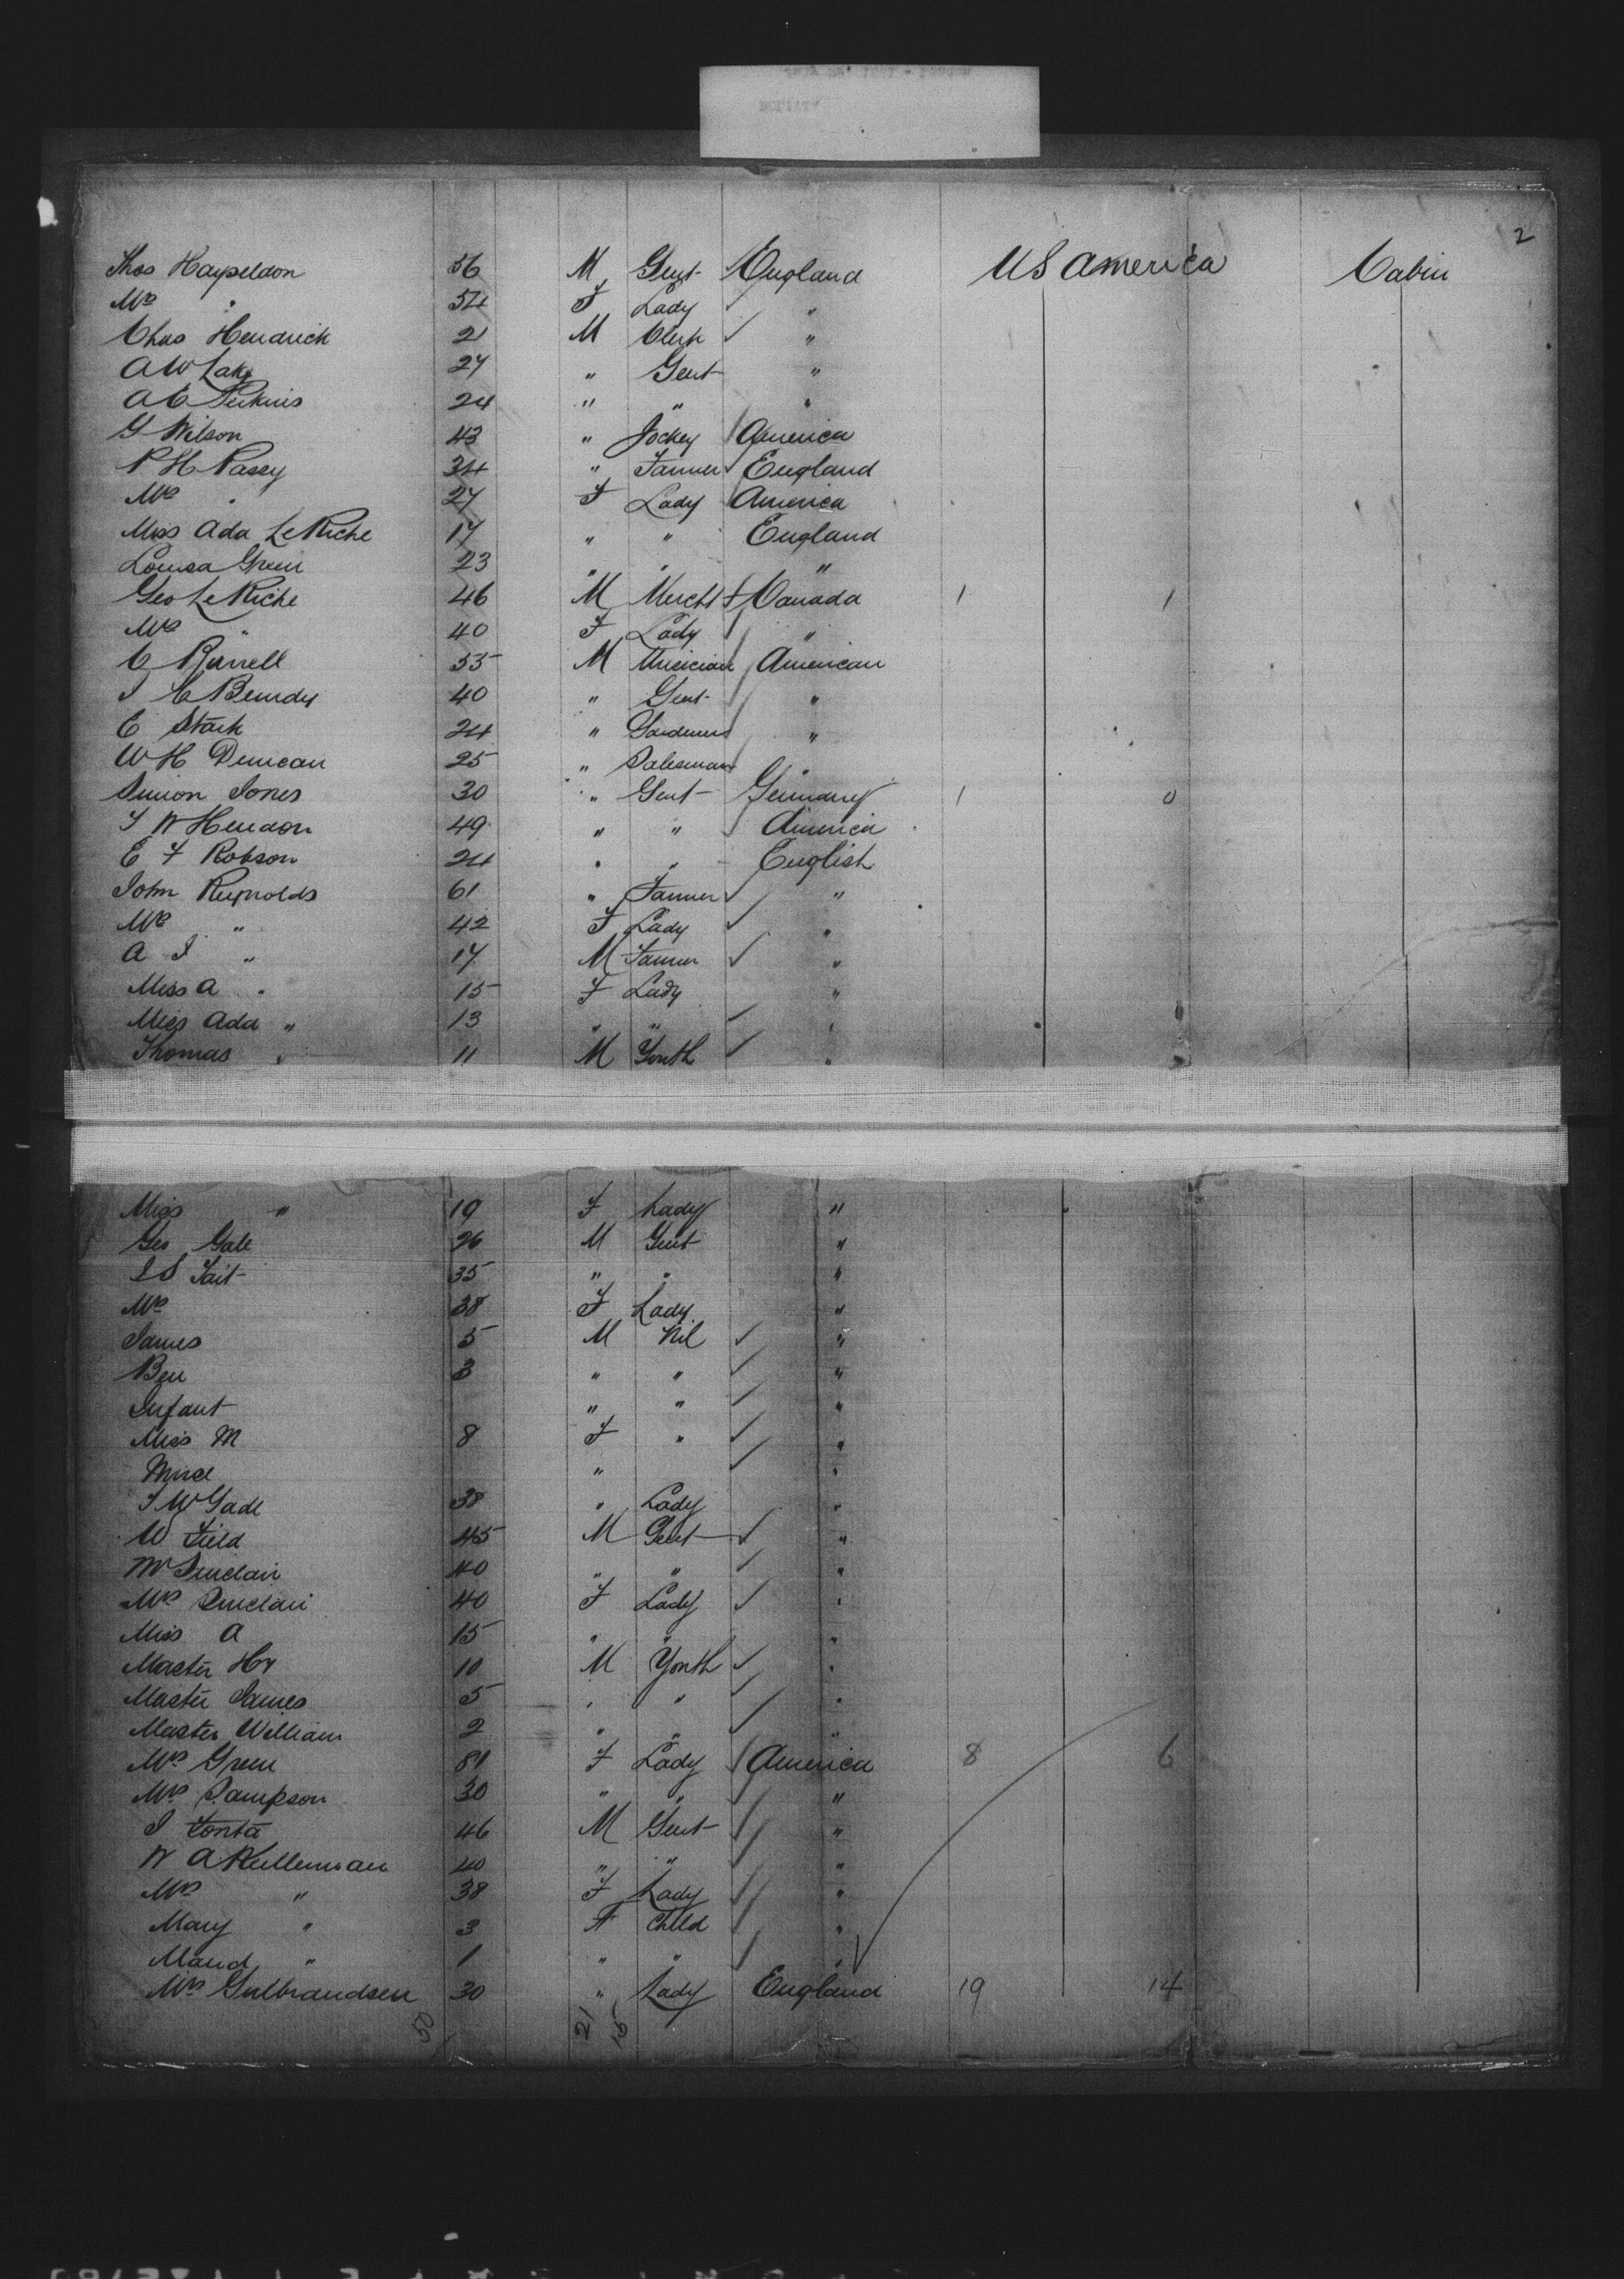 2
Thos Haypeldon 56 M Gent England US America Cabin
Mrs " 54 F Lady "
Chas Hendrick 21 M Clerk "
A W Lake 27 " Gent "
A C Perkins 24 " " "
G Wilson 43 " Jockey America
P H Passy 34 " Farmer England
Mrs " 27 F Lady America
Miss Ada LeRiche 17 " " England
Louisa Green 23 " " "
Geo LeRiche 46 M Mercht Canada 1 1
Mrs " 40 F Lady "
C Burrell 55 M Musician American
J C Bemdy 40 " Gent "
E Stark 24 " Gardener "
W H Duncan 25 " Salesman "
Simon Jones 30 " Gent Germany 1 0
T W Hendon 49 " " America
E F Robson 24 " " English
John Reynolds 61 " Farmer "
Mrs " 42 F Lady "
A J " 17 M Farmer "
Miss A " 15 F Lady "
Miss Ada " 13 " " "
Thomas " 11 M Youth "
Miss " 19 F Lady "
Geo Gale 26 M Gent "
J S Tait 35 " " "
Mrs 38 F Lady "
James 5 M Nil "
Ben 3 " " "
Infant " " "
Miss M 8 F " "
" "
38 " Lady "
W Field 45 M Gent "
Mr Sinclair 40 " " "
Mrs Sinclair 40 F Lady "
Miss A 15 " " "
Master Hy 10 M Youth "
Master James 5 " " "
Master William 2 " " "
Mrs Green 81 F Lady America 8 6
Mrs Sampson 30 " " "
J Tonta 46 M Gent "
W A Kulleman 40 " " "
Mrs " 38 F Lady "
Mary " 3 F Child "
Maud " 1 " " "
Mrs Gulbrandsen 30 " Lady England 19 14
50 21 15